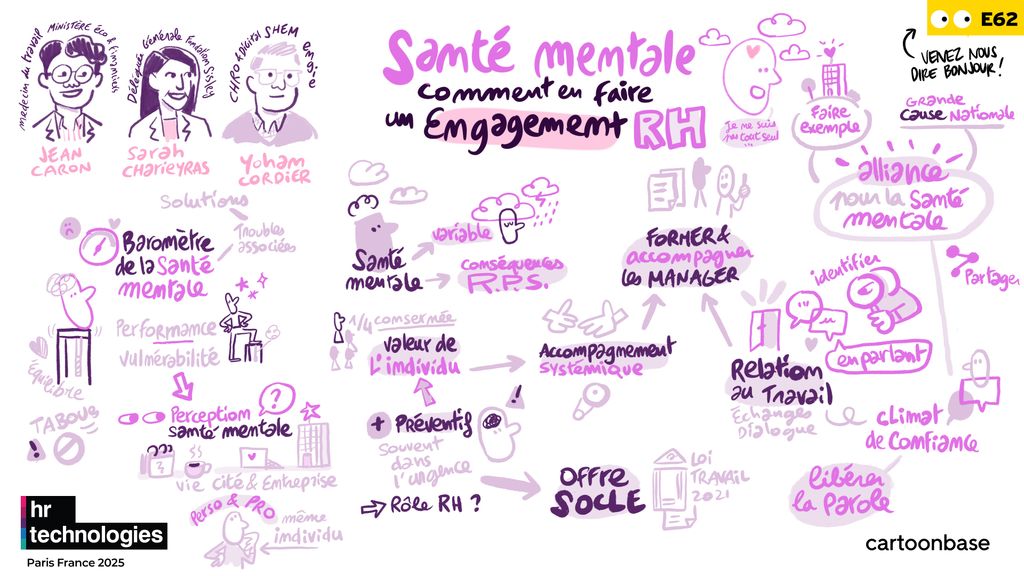 médecin du travail MINISTÈRE ÉCO & Finances
Déléguée Générale Fondation Sisley
CHRO & DIGITAL SHEM
JEAN
CARON
Sarah
CHarieyras
Yoham
CORDIER
Santé mentale
comment en faire
un Engagement RH
Je me suis
vu tout seul
E62
VENEZ NOUS
DIRE BONJOUR !
Faire
exemple
GRANDE
CAUSE Nationale
alliance
pour la Santé
mentale
Partager
Solutions
Troubles
associées
Baromètre
de la Santé
mentale
Performance
vulnérabilité
Équilibre
TABOUS
!
?
Perception
santé mentale
vie cité & Entreprise
Perso & PRO
même
individu
Santé
mentale
variable
conséquences
R.P.S.
1/4 comsernée
valeur de
L'individu
+ Préventif
!
souvent
dans
l'urgence
Rôle RH ?
Accompagnement
systémique
OFFRE
SOCLE
LOI
TRAVAIL
2021
FORMER &
accompagner
les MANAGER
identifier
en parlant
Relation
au Travail
Échanges
Dialogue
climat
de comfiance
libérer
la parole
hr
technologies
Paris France 2025
cartoonbase